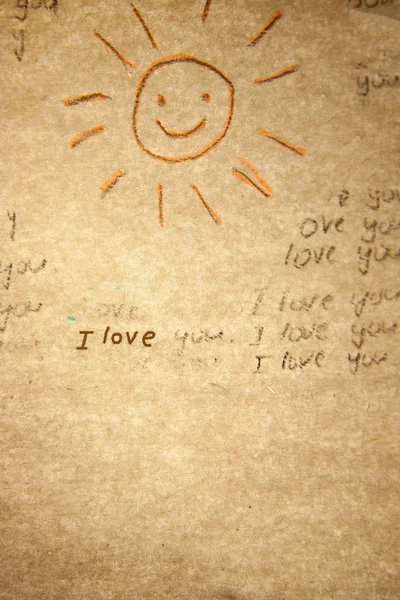 you
y
you
you
ove you
y
love you
you.
you
ove
I love you
I love you. I love you
you I love you